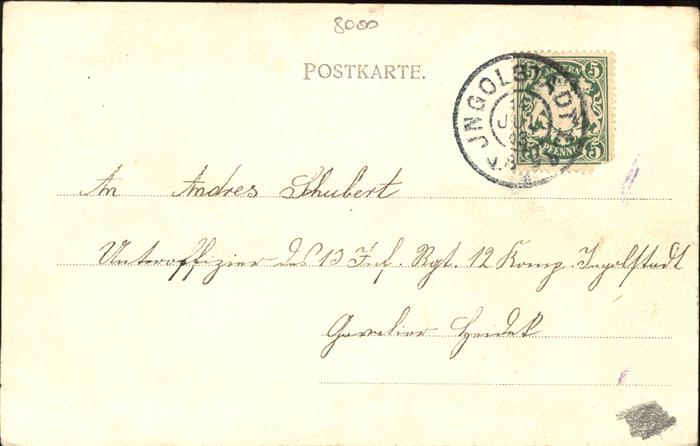 8000
POSTKARTE.
INGOLSTADT
14
JUL
BAYERN
5 5
PFENNIG
An Andres Schubert
Unteroffizier des 13 Inf. Rgt. 12 Komp. Ingolstadt
Cavalier Heidek